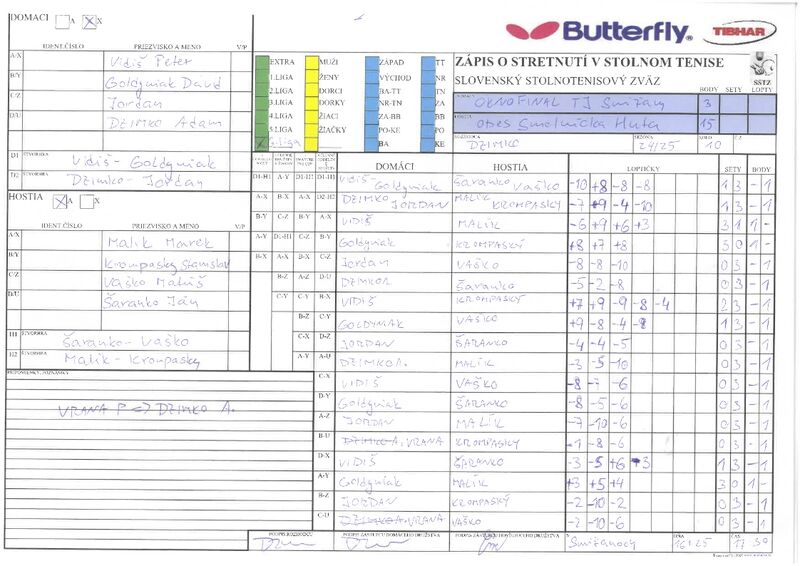 DOMÁCI A X
Butterfly TIBHAR
IDENT.ČÍSLO PRIEZVISKO A MENO V/P
A/X Vidiš Peter
B/Y Goldyniak David
C/Z Jordan
D/U DZIMKO Adam
D1 ŠTVORHRA Vidiš - Goldyniak
D2 ŠTVORHRA Dzimko - Jordan
HOSTIA X A X
IDENT ČÍSLO PRIEZVISKO A MENO V/P
A/X Malik Marek
B/Y Krompasky Stanislav
C/Z Vaško Matúš
D/U Šaranko Ján
H1 ŠTVORHRA Šaranko - Vaško
H2 ŠTVORHRA Malik - Krompasky
PRIPOMIENKY, POZNÁMKY
VRANA P => DZIMKO A.
EXTRA MUŽI ZÁPAD TT
1.LIGA ŽENY VÝCHOD NR
2.LIGA DORCI BA-TT TN
3.LIGA DORKY NR-TN ZA
4.LIGA ŽIACI ZA-BB BB
5.LIGA ŽIAČKY PO-KE PO
6.liga BA KE
ZÁPIS O STRETNUTÍ V STOLNOM TENISE
SLOVENSKÝ STOLNOTENISOVÝ ZVÄZ
SSTZ
BODY SETY LOPTY
OKNOFINAL TJ Smižany 3
Obec Smolnícka Huta 15
DZIMKO 24/25 10
DOMÁCI HOSTIA LOPTIČKY SETY BODY
D1-H1 A-Y D1-H1 D1-H1 Vidiš-Goldyniak Šaranko Vaško -10 +8 -8 -8 1 3 - 1
A-X B-X A-X D2-H2 DZIMKO JORDAN MALÍK KROMPASKÝ -7 +9 -4 -10 1 3 - 1
B-Y C-Z B-Y A-X VIDIŠ MALÍK -6 +9 +6 +3 3 1 1 -
A-Y D1-H1 C-Z B-Y Goldyniak KROMPASKÝ +8 +7 +8 3 0 1 -
B-X A-X B-X C-Z Jordan VAŠKO -8 -8 -10 0 3 - 1
B-Z A-Z D-U DZIMKO A. Šaranko -5 -2 -8 0 3 - 1
C-Y C-Y B-X VIDIŠ KROMPASKÝ +7 +9 -9 -8 -4 2 3 - 1
B-Z C-Y GOLDYNIAK VAŠKO +9 -8 -4 -8 1 3 - 1
C-X D-Z JORDAN ŠARANKO -4 -4 -5 0 3 - 1
A-Y A-U DZIMKO A. MALÍK -3 -5 -10 0 3 - 1
C-X VIDIŠ VAŠKO -8 -7 -6 0 3 - 1
D-Y Goldyniak ŠARANKO -8 -5 -6 0 3 - 1
A-Z JORDAN MALÍK -7 -10 -6 0 3 - 1
B-U DZIMKO A. VRANA KROMPASKÝ -1 -8 -6 0 3 - 1
D-X VIDIŠ ŠARANKO -3 -5 +6 +3 1 3 - 1
A-Y Goldyniak MALÍK +3 +5 +4 3 0 1 -
B-Z JORDAN KROMPASKÝ -2 -10 -2 0 3 - 1
C-U DZIMKO A. VRANA VAŠKO -2 -10 -6 0 3 - 1
PODPIS ROZHODCU PODPIS ZÁSTUPCU DOMÁCEHO DRUŽSTVA
DŇA ČAS
17 30